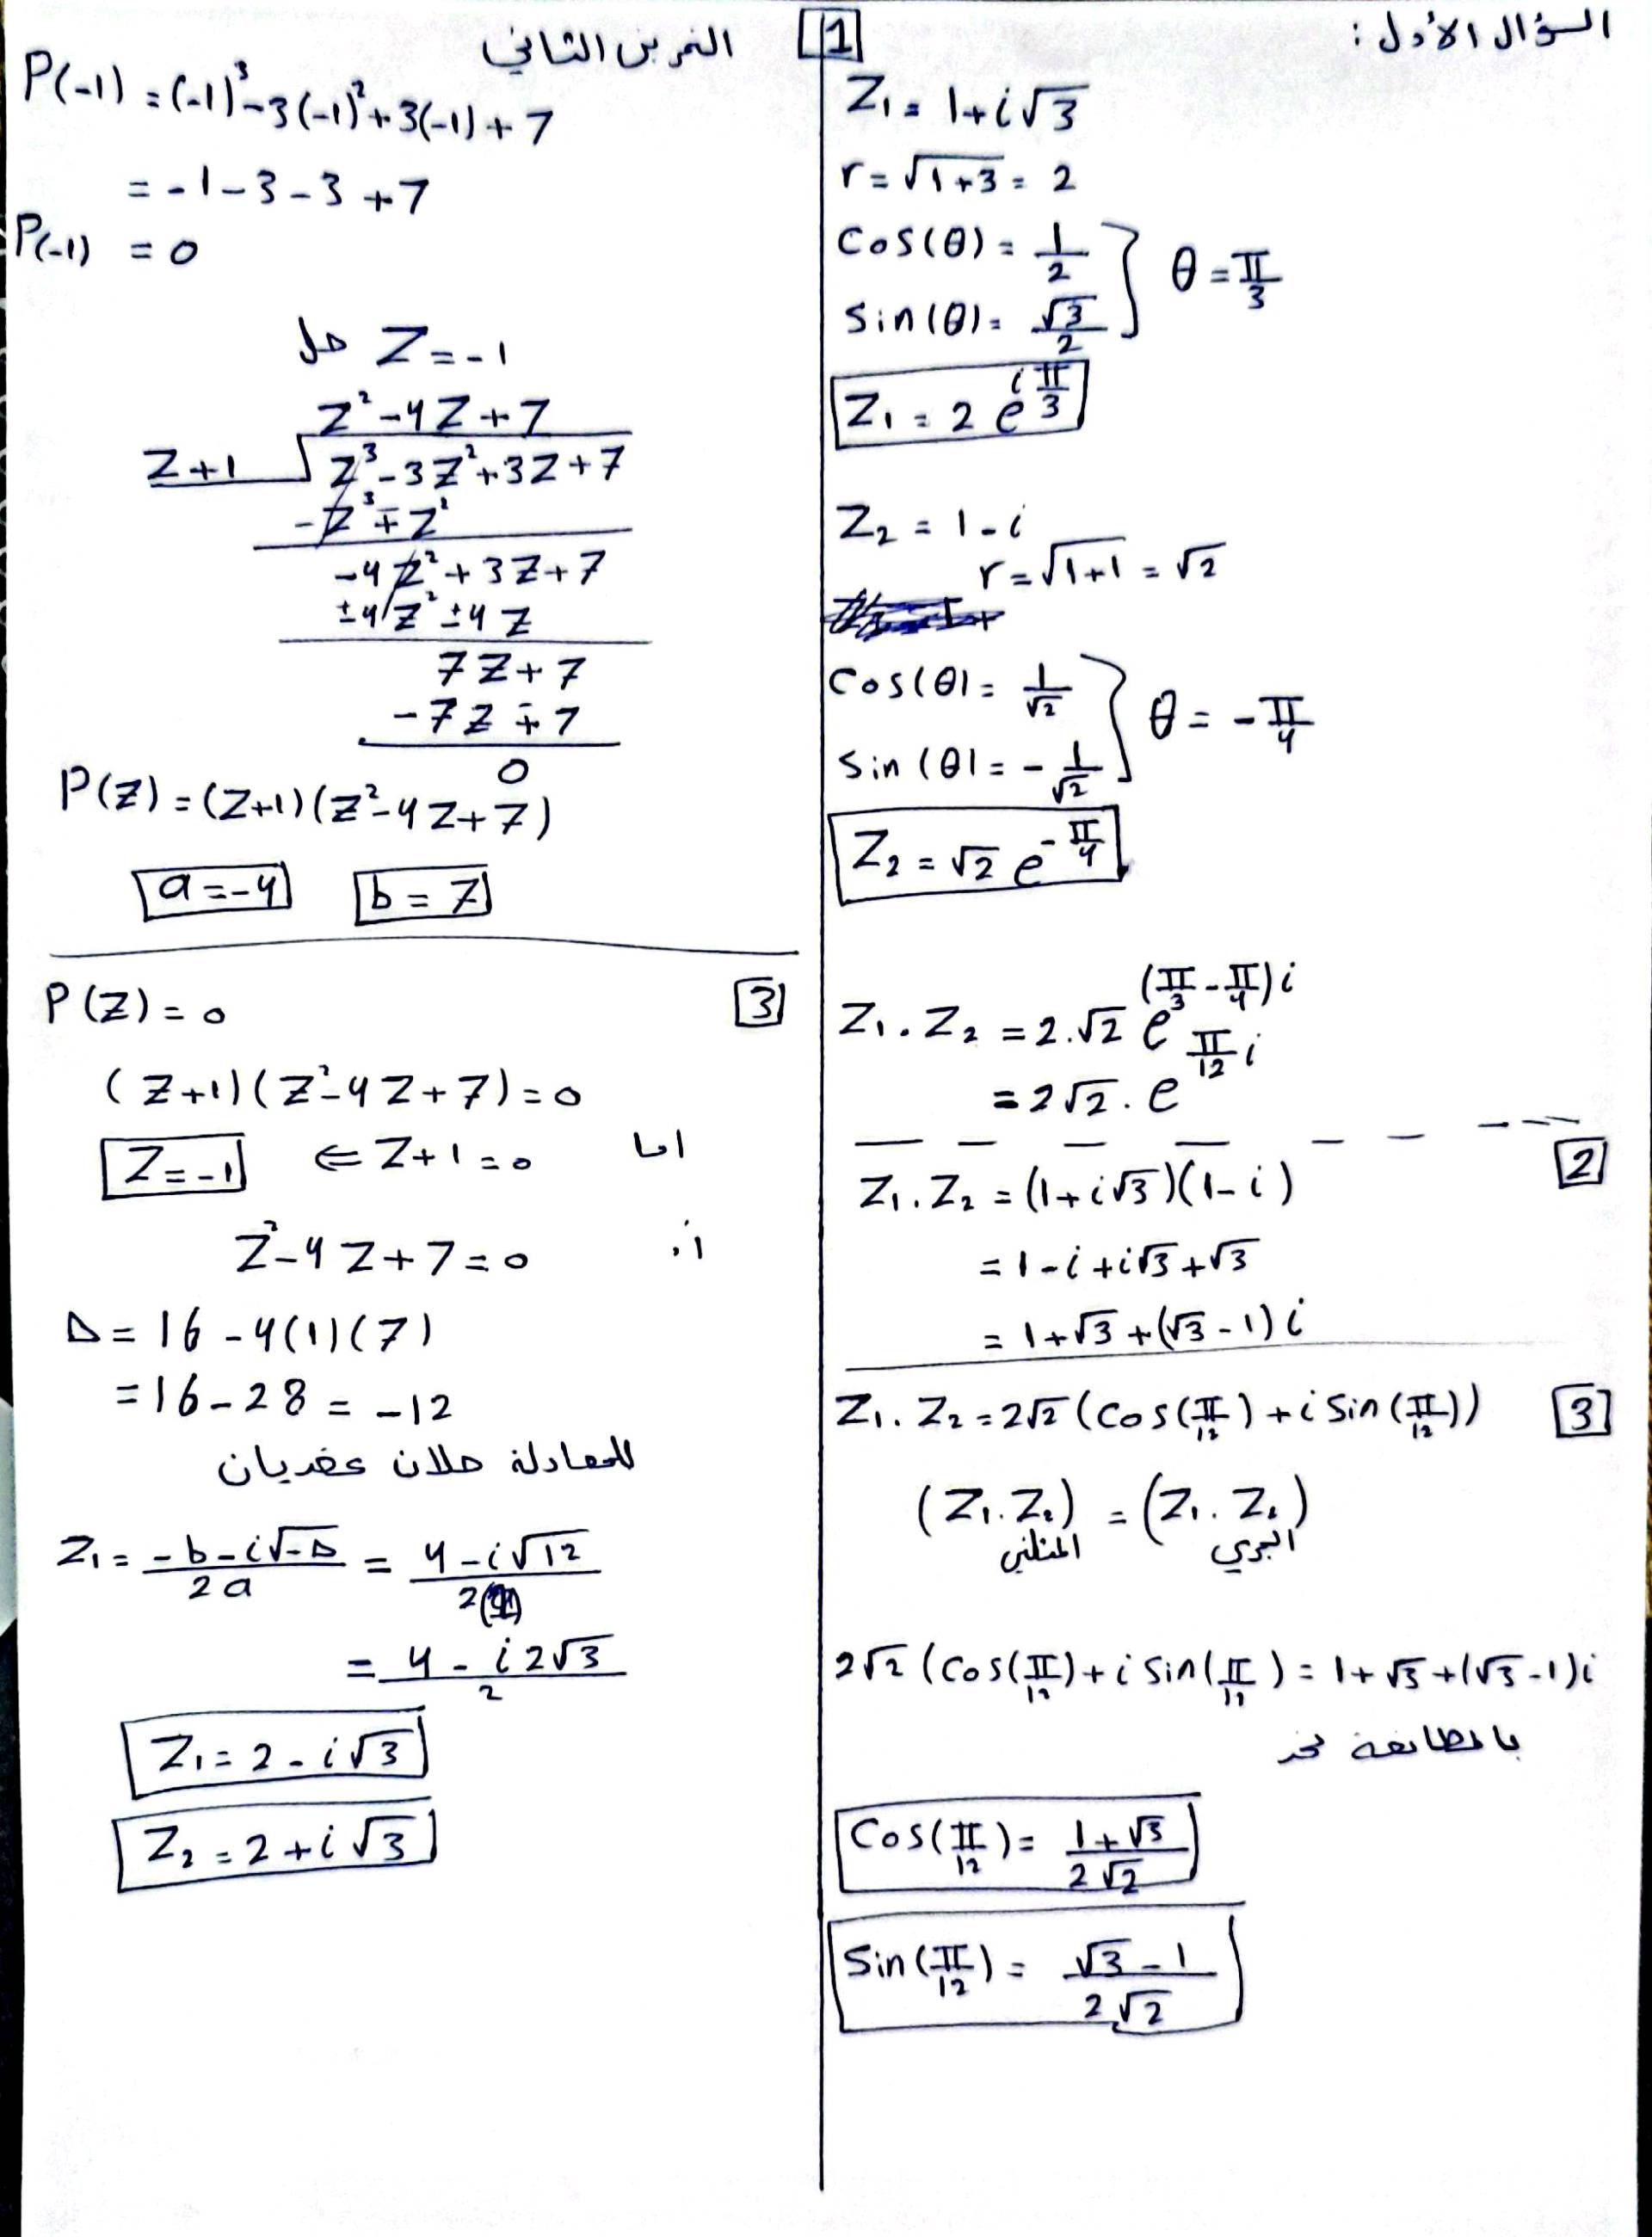 السؤال الأول :
1
Z₁ = 1+i√3
r = √1+3 = 2
Cos(θ) = 1/2
Sin(θ) = √3/2
} θ = π/3
Z₁ = 2 e^(i π/3)
Z₂ = 1-i
r = √1+1 = √2
Cos(θ) = 1/√2
Sin(θ) = - 1/√2
} θ = - π/4
Z₂ = √2 e^(-π/4)
Z₁ . Z₂ = 2.√2 e^((π/3 - π/4)i)
= 2√2 . e^(π/12 i)
2
Z₁ . Z₂ = (1+i√3)(1-i)
= 1-i+i√3+√3
= 1+√3+(√3-1)i
3
Z₁ . Z₂ = 2√2 (Cos(π/12) + i Sin(π/12))
(Z₁ . Z₂) = (Z₁ . Z₂)
المثلثي الجبري
2√2 (Cos(π/12) + i Sin(π/12) = 1+√3+(√3-1)i
بالمطابقة نجد
Cos(π/12) = 1+√3/2√2
Sin(π/12) = √3-1/2√2
التمرين الثاني
P(-1) = (-1)³-3(-1)²+3(-1)+7
= -1-3-3+7
P(-1) = 0
Z = -1 حل
Z²-4Z+7
Z+1 √Z³-3Z²+3Z+7
-Z³∓Z²
-4Z²+3Z+7
±4Z²±4Z
7Z+7
-7Z∓7
0
P(Z) = (Z+1)(Z²-4Z+7)
a = -4 b = 7
3
P(Z) = 0
(Z+1)(Z²-4Z+7) = 0
اما Z+1 = 0 ⇐ Z = -1
أو Z²-4Z+7 = 0
Δ = 16-4(1)(7)
= 16-28 = -12
للمعادلة حلان عقديان
Z₁ = -b-i√-Δ/2a = 4-i√12/2(1)
= 4-i2√3/2
Z₁ = 2-i√3
Z₂ = 2+i√3